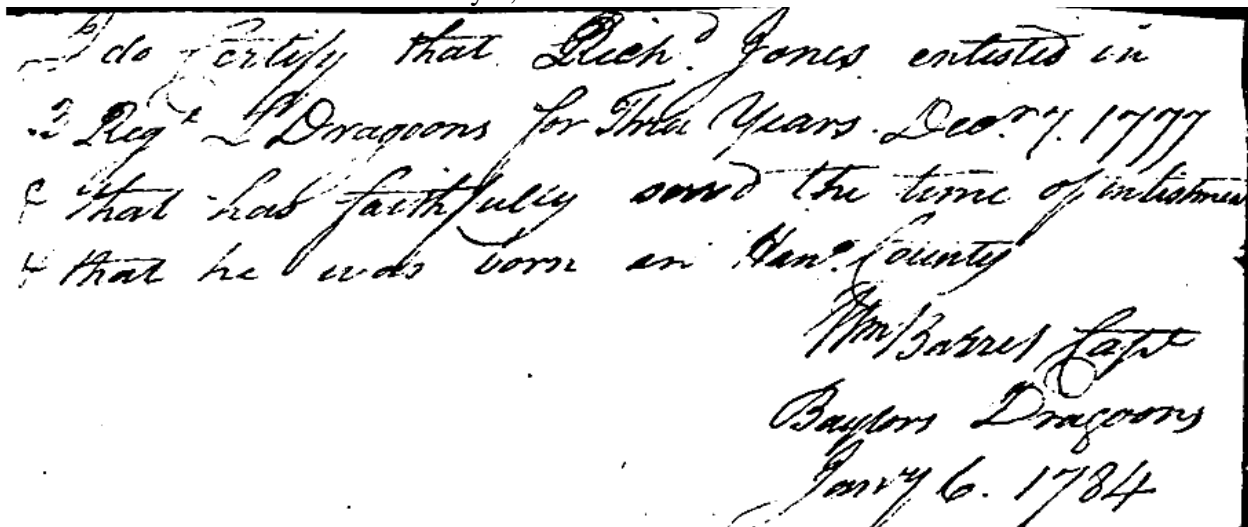 I do Certify that Richd. Jones entisted in
3 Regt. Lt Dragoons for Three Years. Decr. 7. 1777
& that has faithfully servd the time of intistmen
& that he was born in Hano. County
Wm Barret Capt
Baylors Dragoons
Jany 6. 1784